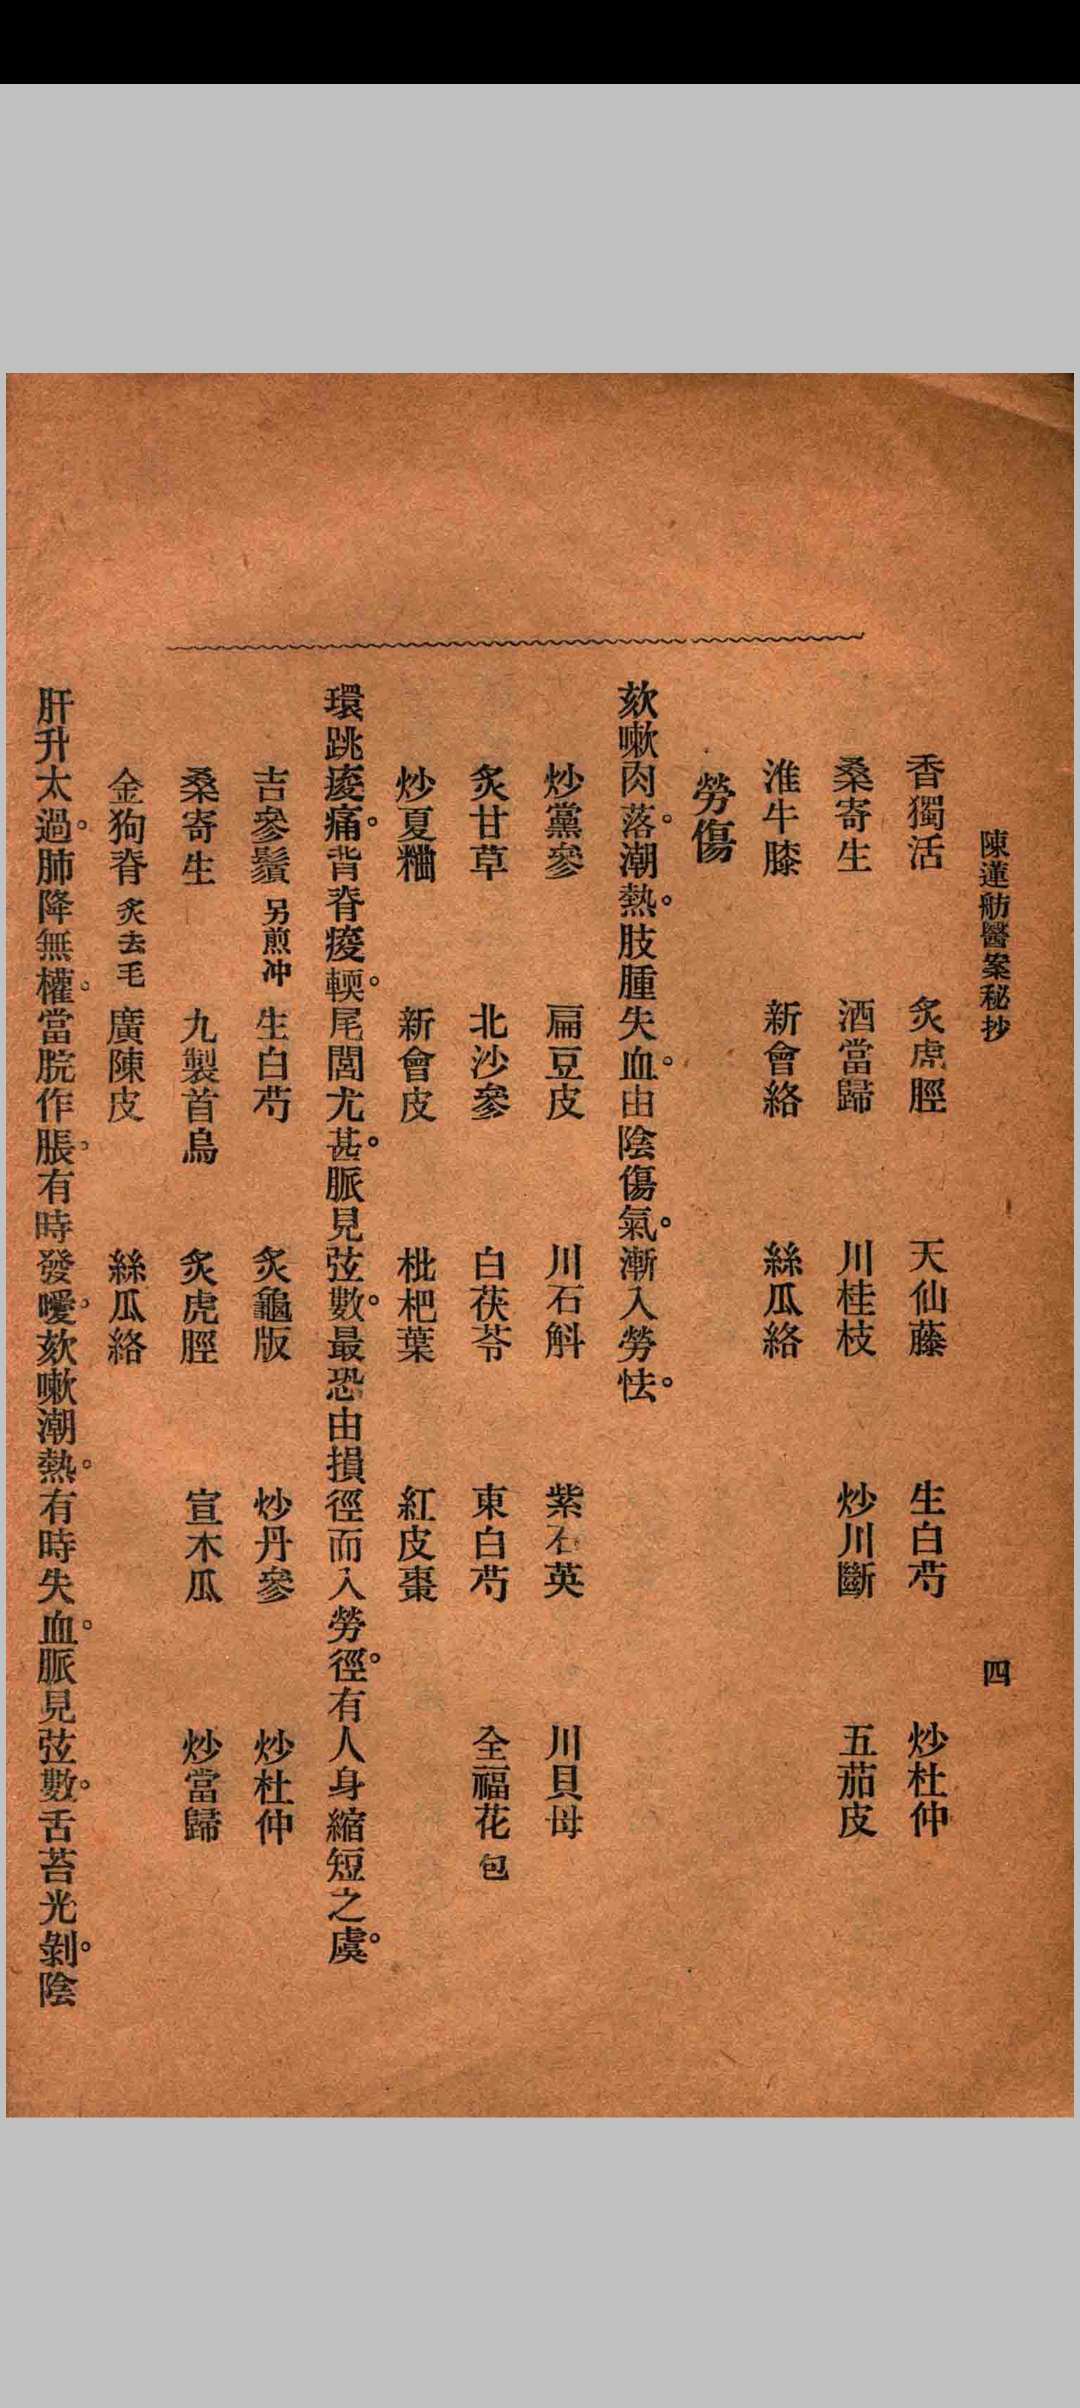 陳蓮舫醫案秘抄 四
香獨活 炙虎脛 天仙藤 生白芍 炒杜仲
桑寄生 酒當歸 川桂枝 炒川斷 五茄皮
淮牛膝 新會絡 絲瓜絡
勞傷
欬嗽肉落。潮熱。肢腫失血。由陰傷氣。漸入勞怯。
炒黨參 扁豆皮 川石斛 紫石英 川貝母
炙甘草 北沙參 白茯苓 東白芍 全福花 包
炒夏粬 新會皮 枇杷葉 紅皮棗
環跳痠痛。背脊痠輭。尾閭尤甚。脈見弦數。最恐由損徑而入勞徑。有人身縮短之虞。
吉參鬚 另煎冲 生白芍 炙龜版 炒丹參 炒杜仲
桑寄生 九製首烏 炙虎脛 宣木瓜 炒當歸
金狗脊 炙去毛 廣陳皮 絲瓜絡
肝升太過。肺降無權。當脘作脹。有時發噯。欬嗽潮熱。有時失血。脈見弦數。舌苔光剝。陰